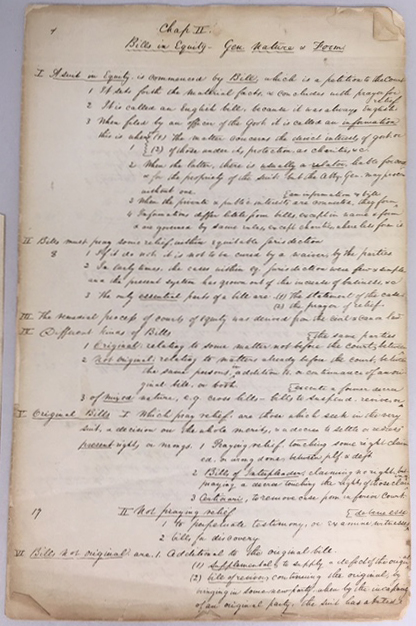 4
Chap II.
Bills in Equity - Gen Nature & Form
I A suit in Equity is commenced by Bill, which is a petition to the Court
1 It sets forth the material facts, & concludes with prayer for relief
2 It is called an English bill, because it was always English
3 When filed by an officer of the Govt it is called an information
this is when (1) The matter concerns the direct interests of govt. or
1 (2) of those under its protection, as charities &c.
2 When the latter, there is usually a relator, liable for costs
& for the propriety of the suit. but the Atty Gen. may proceed
without one
{an information & bill
3 When the private & public interests are connected, they form
4 Informations differ little from bills, except in name & form
& are governed by same rules, except charities where less form is
II Bills must pray some relief within equitable jurisdiction
8 1 If it do not it is not to be cured by a waiver, by the parties
2 In early times, the cases within eq. jurisdiction were few & simple
and the present system has grown out of the increase of business &c
3 The only essential parts of a bill are - (1) The statement of the case
(2) the prayer of relief.
III. The remedial process of courts of equity was derived from the civil & can. law
IV Different kinds of Bills
{the same parties
1 Original, relating to some matter not before the Court, between
2 Not original; relating to matters already before the court, between
the same persons, addition to, or continuance of an original bill, or both
{execute a former decree
3 of mixed nature, e.g. cross bills - bills to suspend, reverse, or
V Original Bills I Which pray relief. are those which seek in the very
suit, a decision on the whole merits, & a decree to settle or
present rights, or wrongs. 1 Praying relief, touching some right claimed
ed. or wrong done, between plf & deft
2 Bills of Interpleader; claiming no right, but
praying a decree touching the rights of those
3 Certiorari, to remove case from inferior Court
19 II Not praying relief
1 to perpetuate testimony, or examine witnesses
2 bills for discovery
VI Bills not original: are. 1 Additional to the original bill.
(1) Supplemental; to supply a defect of the original
(2) bill of revivor, continuing the original, by
bringing in some new party, when by the
of an original party, the suit has abated